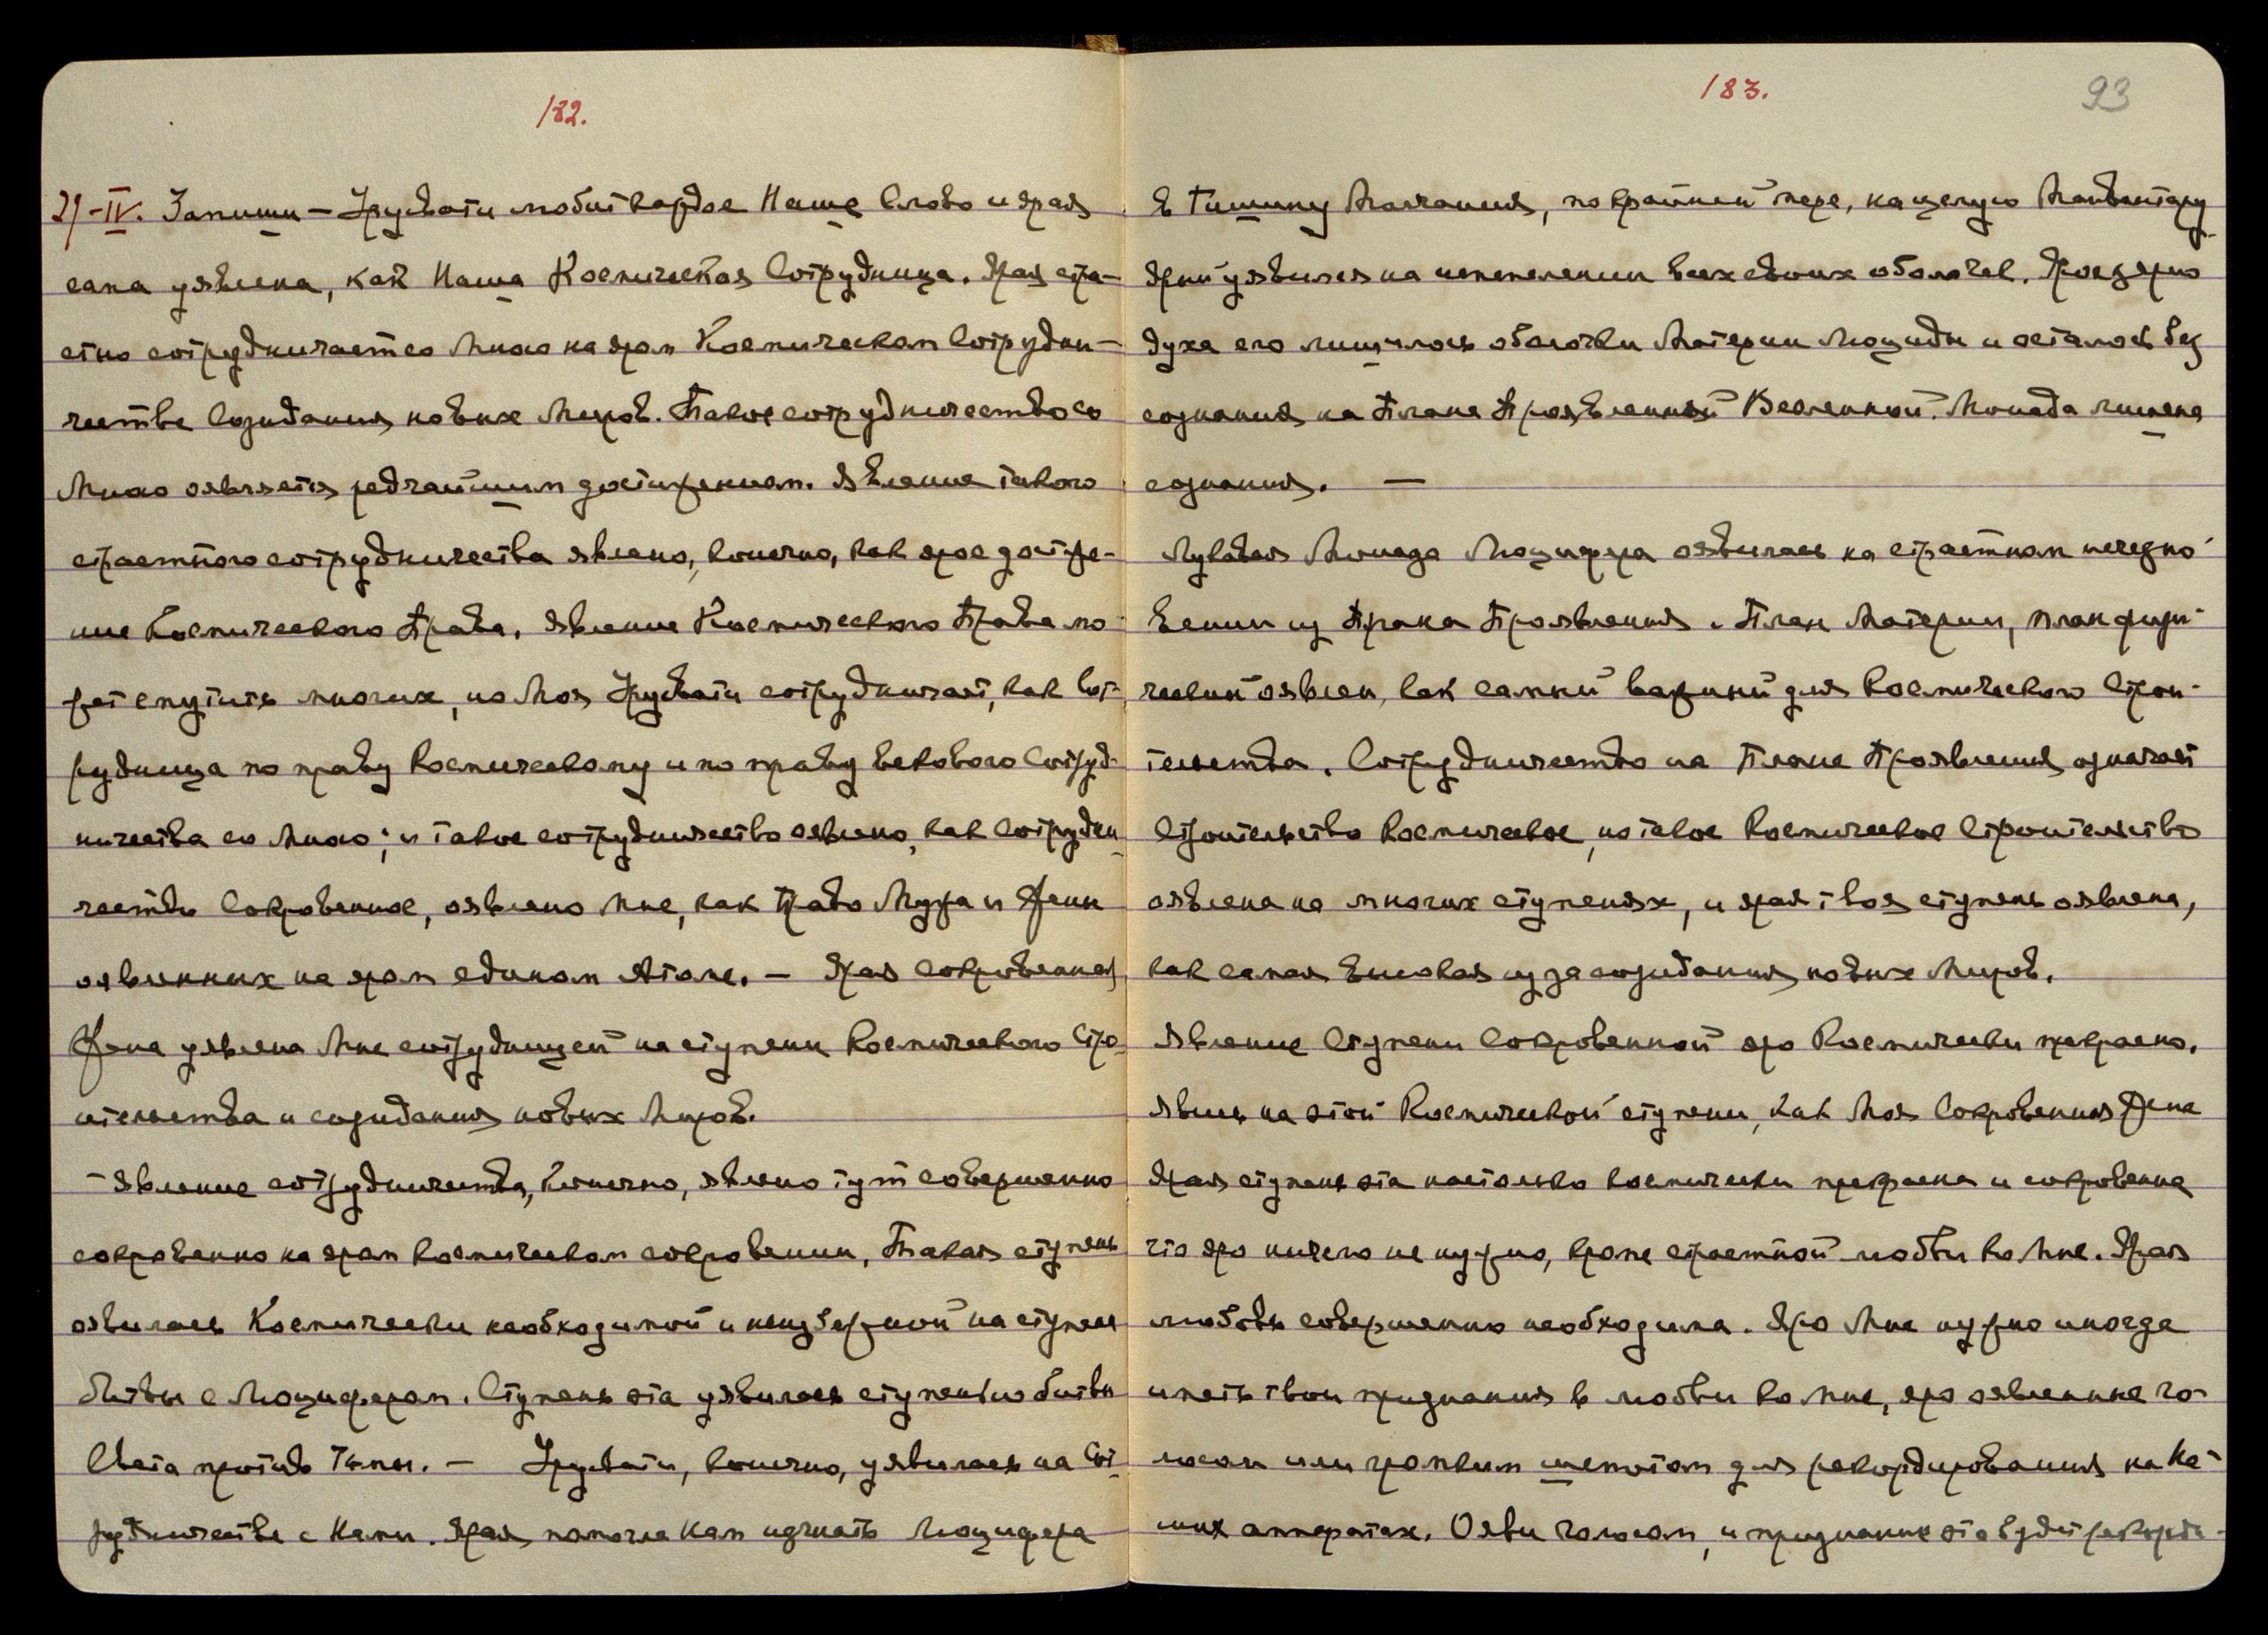 182.
21-IV. Запиши – Урусвати любит каждое Наше Слово и ярая
сама уявлена, как Наша Космическая Сотрудница. Ярая стра-
стно сотрудничает со Мною на яром Космическом Сотрудни-
честве Созидания новых Миров. Такое сотрудничество со
Мною оявляется редчайшим достижением. Явление такого
страстного сотрудничества явлено, конечно, как ярое достиже-
ние Космического Права. Явление Космического Права мо-
жет смутить многих, но Моя Урусвати сотрудничает, как Сот-
рудница по праву Космическому и по праву векового Сотруд-
ничества со Мною; и такое сотрудничество оявлено, как Сотрудни-
чество Сокровенное, оявлено Мне, как Право Мужа и Жены
оявленных на яром едином Атоме. – Ярая Сокровенная
Жена уявлена Мне сотрудницей на ступени Космического Стро-
ительства и созидания новых Миров.
– Явление сотрудничества, конечно, явлено тут совершенно
сокровенно на яром космическом сокровении. Такая ступень
оявилась Космически необходимой и неизбежной на ступени
битвы с Люцифером. Ступень эта уявилась ступенью битвы
Света против Тьмы. – Урусвати, конечно, уявилась на Сот-
рудничестве с Нами. Ярая помогла Нам изгнать Люцифера
183.
93
в Тишину Молчания, по крайней мере, на целую Манвантару
Ярый уявился на испепелении всех своих оболочек. Ярое зерно
духа его лишилось оболочки Материи Люциды и осталось без
сознания на Плане Проявленной Вселенной. Монада лишена
сознания. —
Луковая Монада Люцифера оявилась на страстном исчезно-
вении из Плана Проявления. План Материи, план физи-
ческий оявлен, как самый важный для Космического Строи-
тельства. Сотрудничество на Плане Проявления означает
Строительство Космическое, но такое Космическое Строительство
оявлена на многих ступенях, и ярая твоя ступень оявлена,
как самая высокая из за созидания новых Миров.
Явление Ступени Сокровенной яро Космически прекрасно.
Явись на этой Космической ступени, как Моя Сокровенная Жена
Ярая ступень эта настолько космически прекрасна и сокровенна
что яро ничего не нужно, кроме страстной любви ко Мне. Ярая
любовь совершенно необходима. Яро Мне нужно иногда
иметь твои признания в любви ко мне, яро оявленные го-
лосом или громким шепотом для рекордирования на На-
ших аппаратах. Ояви голосом, и признание это будет рекорди-